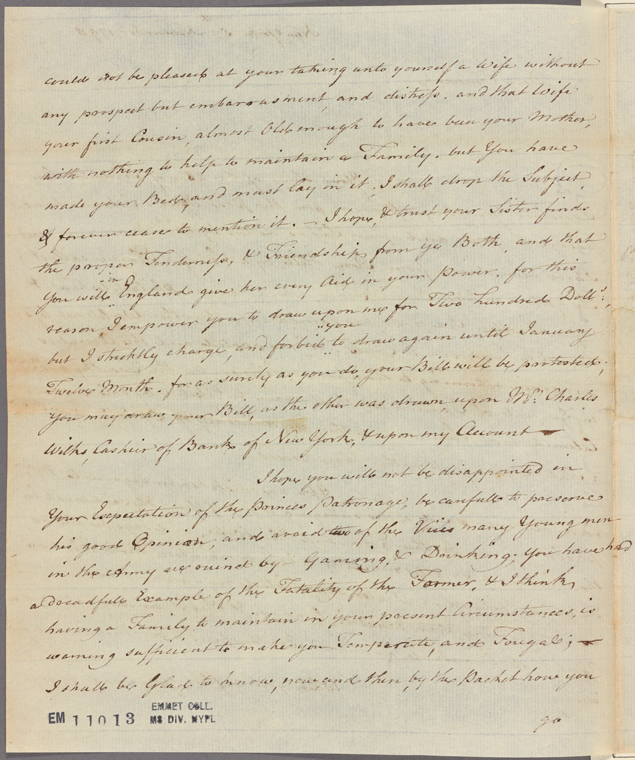 could not be pleased at your taking unto yourself a Wife without
any prospect but embarrasment, and distress. and that Wife
your first Cousin, almost Old enough to have been your Mother,
with nothing to help to maintain a Family. but You have
made your Bed, and must lay in it, I shall drop the Subject,
& forever cease to mention it. — I hope, & trust your Sister finds
the proper Tenderness, & Friendship, from ye Both, and that
You will in England give her every Aid in your power. for this
reason I empower you to draw upon me for Two hundred Doll.s,
but I strictly charge, and forbid you to draw again until January
Twelve Month. for as surely as you do, your Bill will be protested;
You may draw your Bill, as the other was drawn, upon Mr. Charles
Wilks, Cashier of Bank of New York, & upon my Account —
I hope you will not be disappointed in
Your Expectation of the Princes Patronage; be carefull to preserve
his good Opinion, and avoid two of the Vices many Young men
in the Army are ruined by Gaming, & Drinking. You have had
a dreadfull Example of the Fatality of the Former, & I think,
having a Family to maintain in your present Circumstances, is
warning sufficient to make you Temperate, and Frugal; —
I shall be Glad to know, now and then, by the Packet how you
go
EM 11013 EMMET COLL.
MS DIV. NYPL